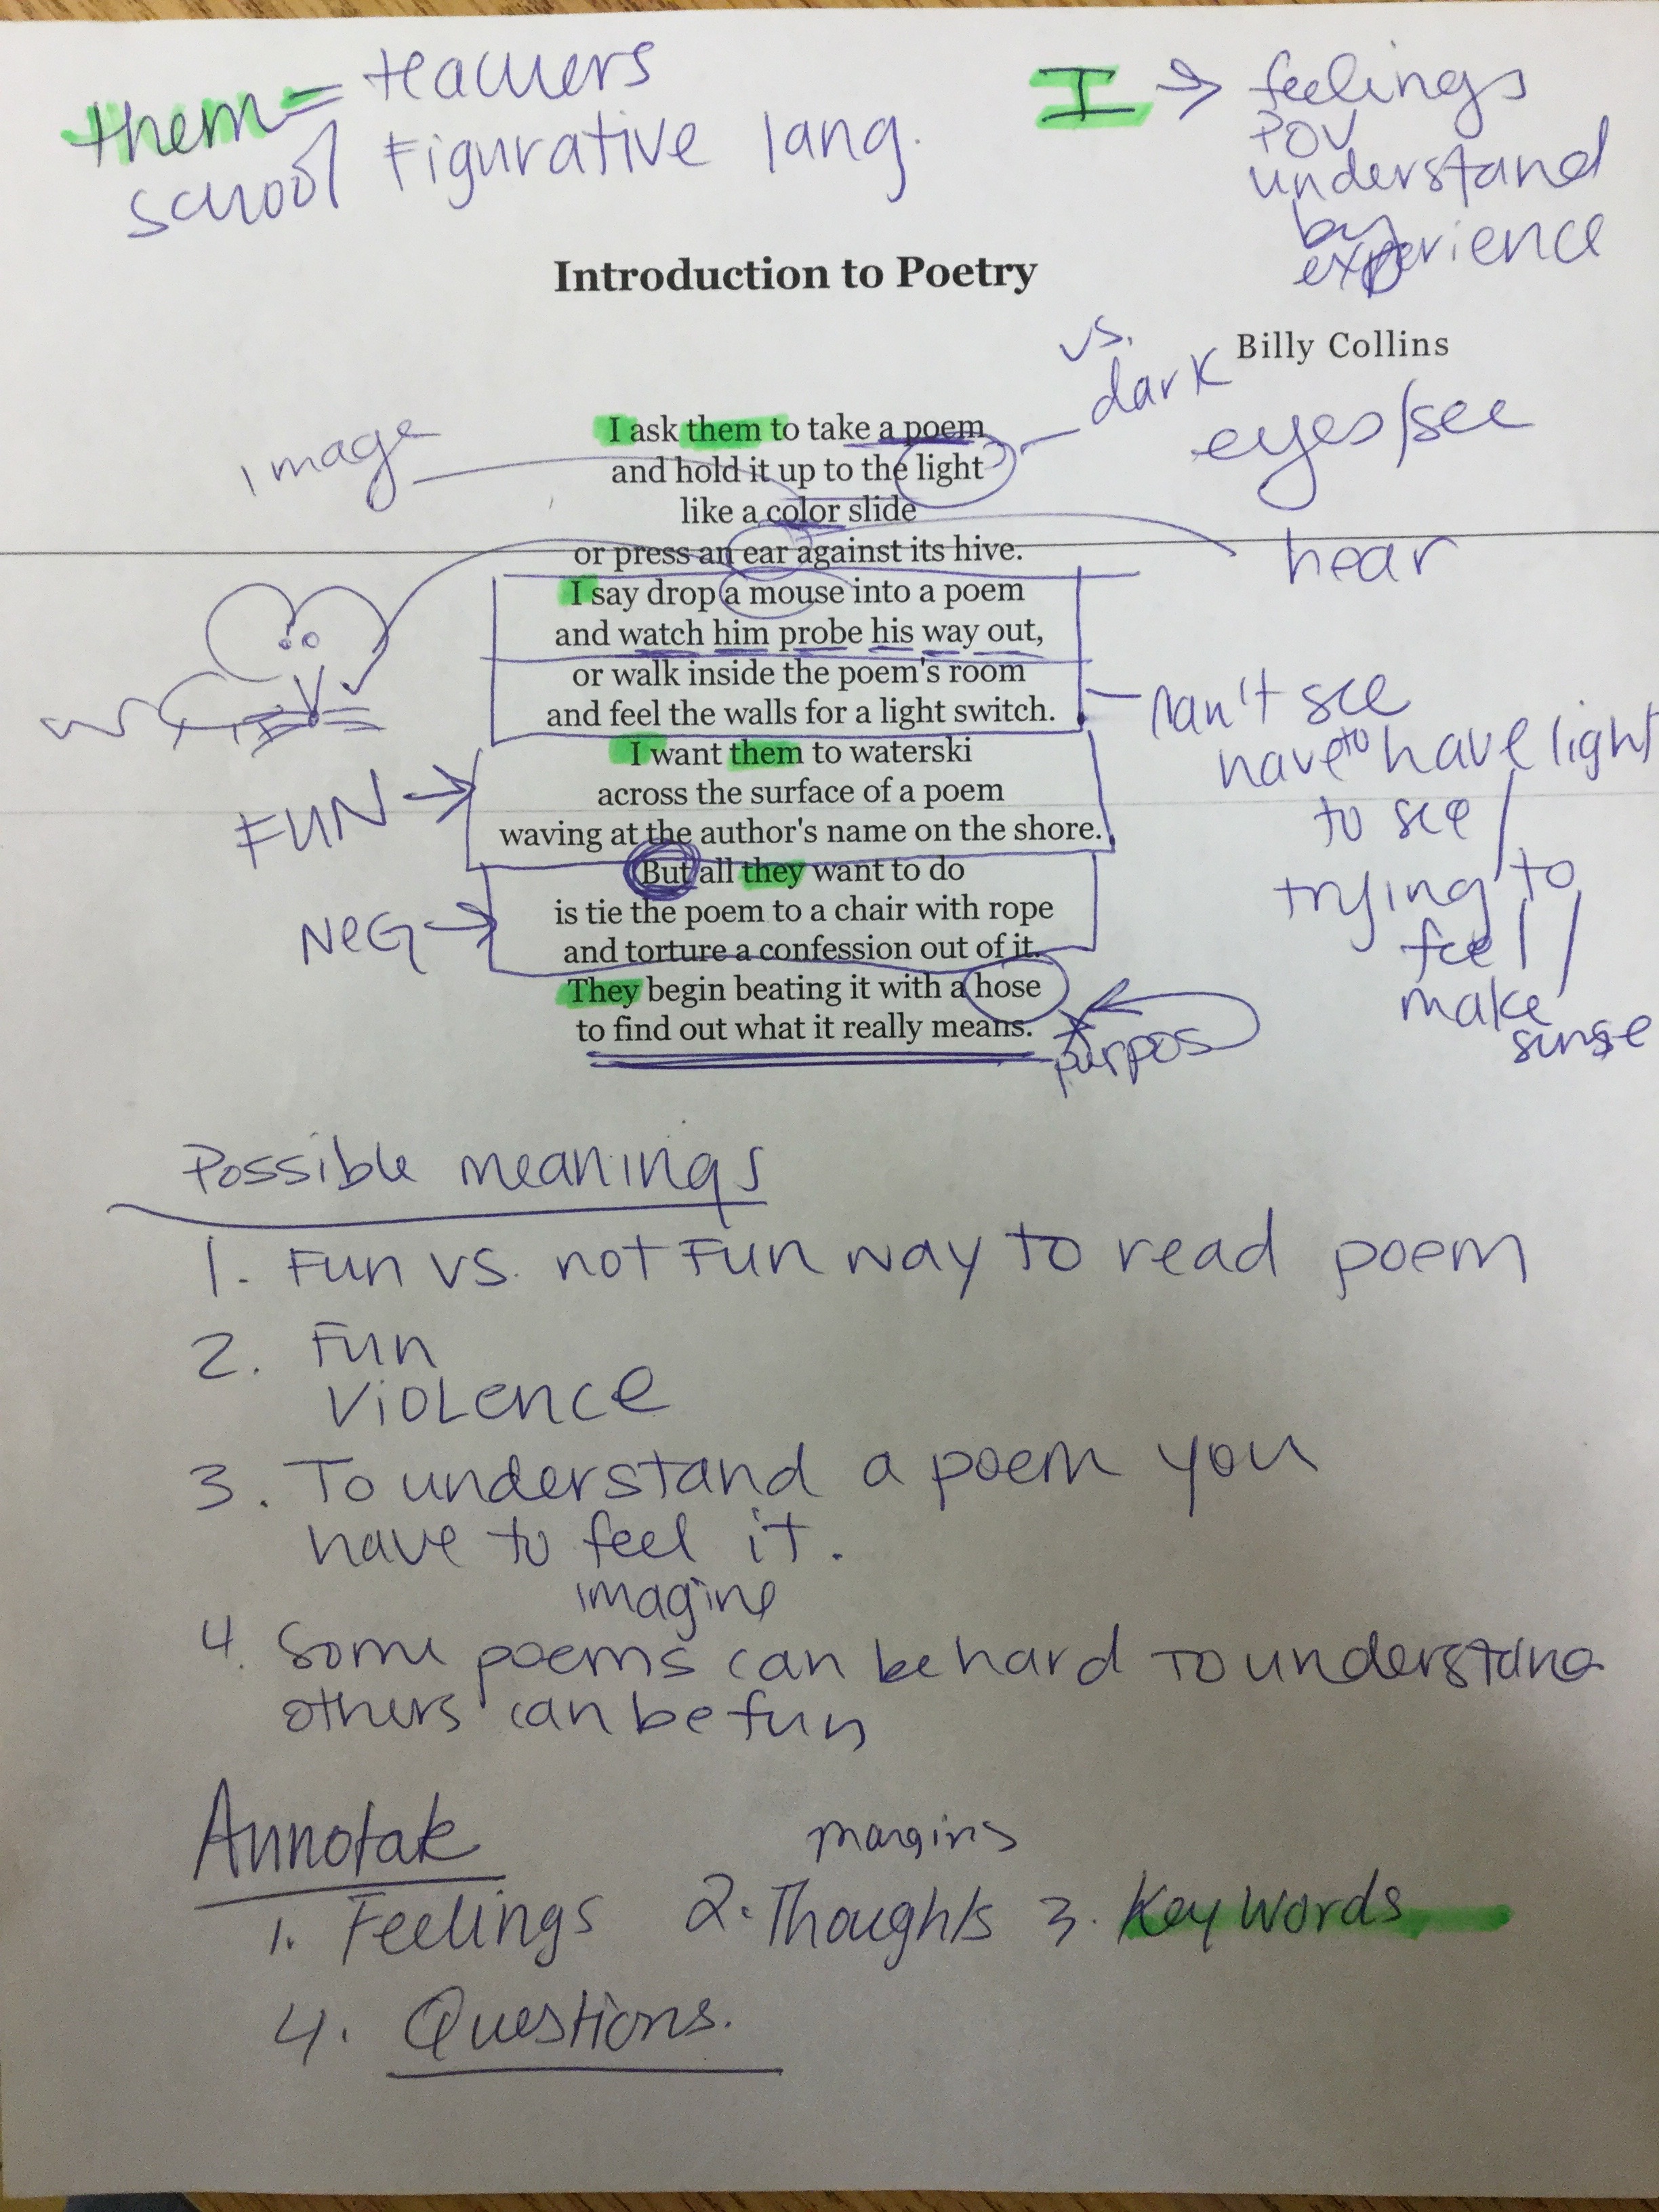 them = teachers
school Figurative lang.
I → feelings
POV
understand
by
experience
Introduction to Poetry
Billy Collins
vs.
dark
eyes/see
image
hear
I ask them to take a poem
and hold it up to the light
like a color slide
or press an ear against its hive.
I say drop a mouse into a poem
and watch him probe his way out,
or walk inside the poem's room
and feel the walls for a light switch.
I want them to waterski
across the surface of a poem
waving at the author's name on the shore.
But all they want to do
is tie the poem to a chair with rope
and torture a confession out of it.
They begin beating it with a hose
to find out what it really means.
FUN →
NEG →
can't see
have to have light
to see
trying to
feel
make
sense
purpos
Possible meanings
1. Fun vs. not Fun way to read poem
2. Fun
Violence
3. To understand a poem you
have to feel it.
imagine
4. Some poems can be hard to understand
others can be fun
Annotate
margins
1. Feelings 2. Thoughts 3. Key Words
4. Questions.